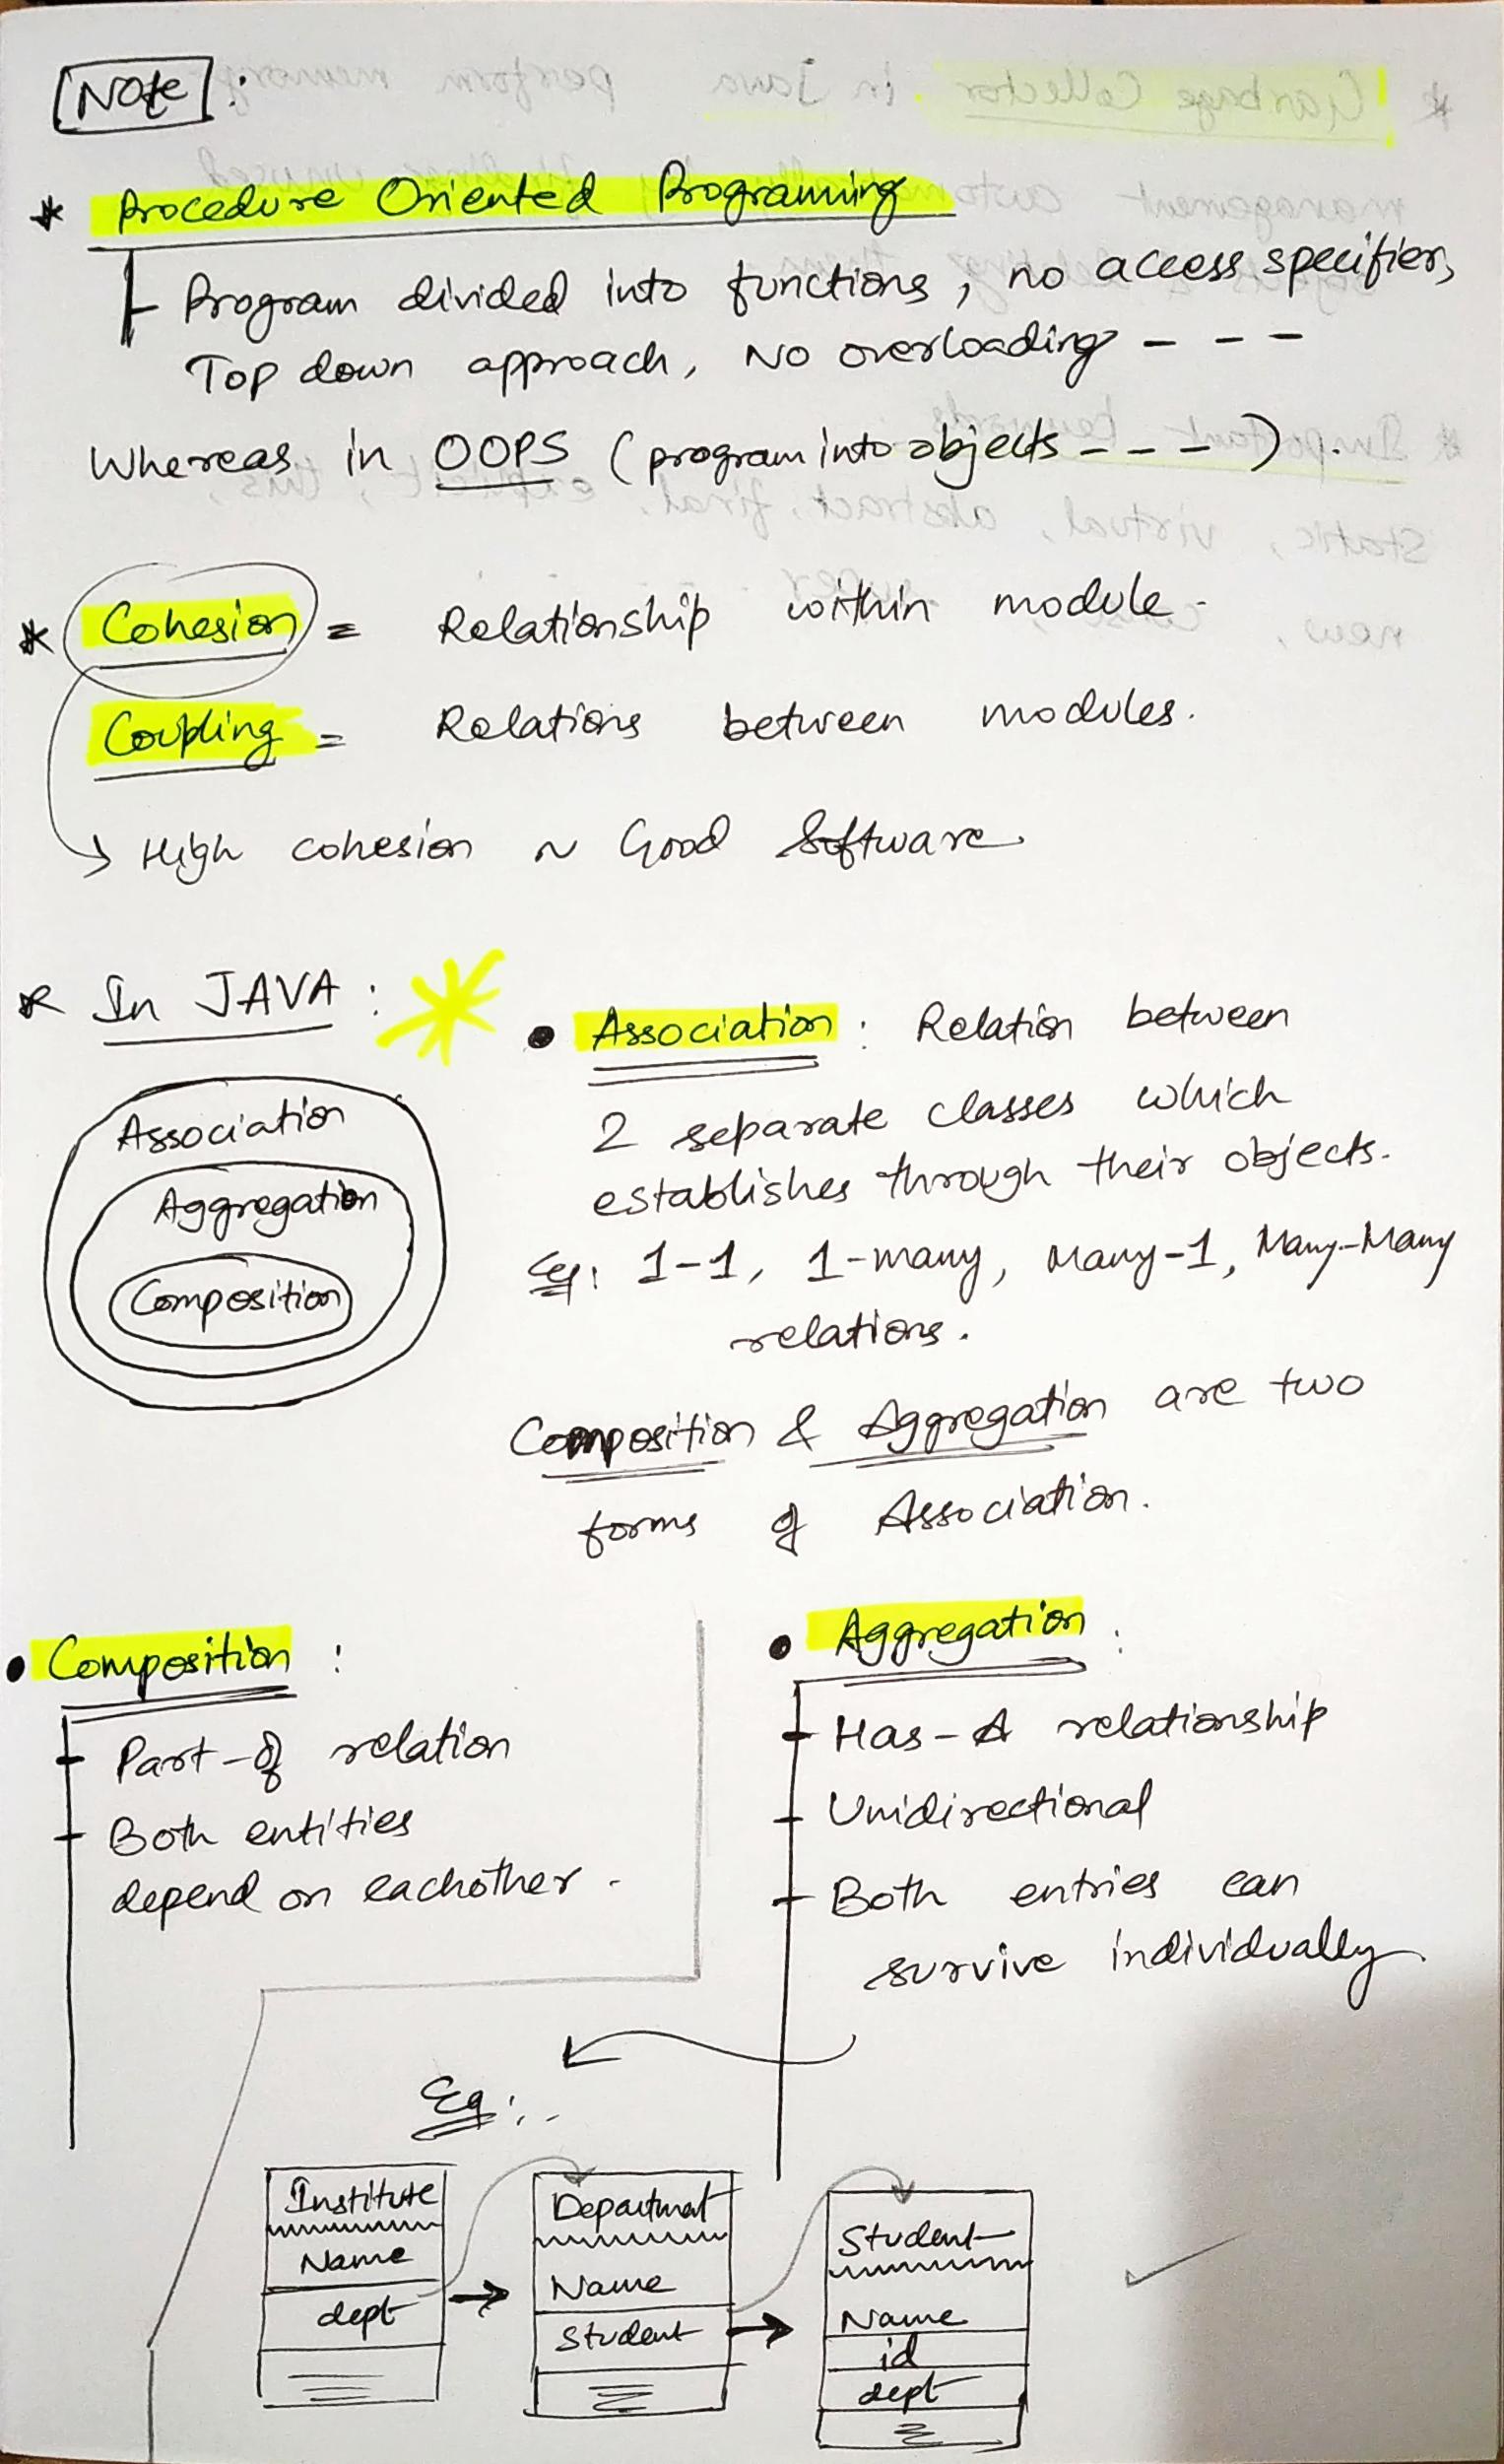 Note :
* Procedure Oriented Programing
Program divided into functions, no access specifier,
Top down approach, No overloading - - -
Whereas in OOPS (program into objects - - - ).
* Cohesion = Relationship within module.
Coupling = Relations between modules.
→ High cohesion ~ Good Software
* In JAVA :
Association
Aggregation
Composition
• Association : Relation between
2 separate classes which
establishes through their objects.
Eg: 1-1, 1-many, Many-1, Many-Many
relations.
Composition & Aggregation are two
forms of Association.
• Composition :
Part-of relation
Both entities
depend on eachother.
• Aggregation :
Has-A relationship
Unidirectional
Both entries can
survive individually
Eg :
Institute
Name
dept
Department
Name
Student
Student
Name
id
dept